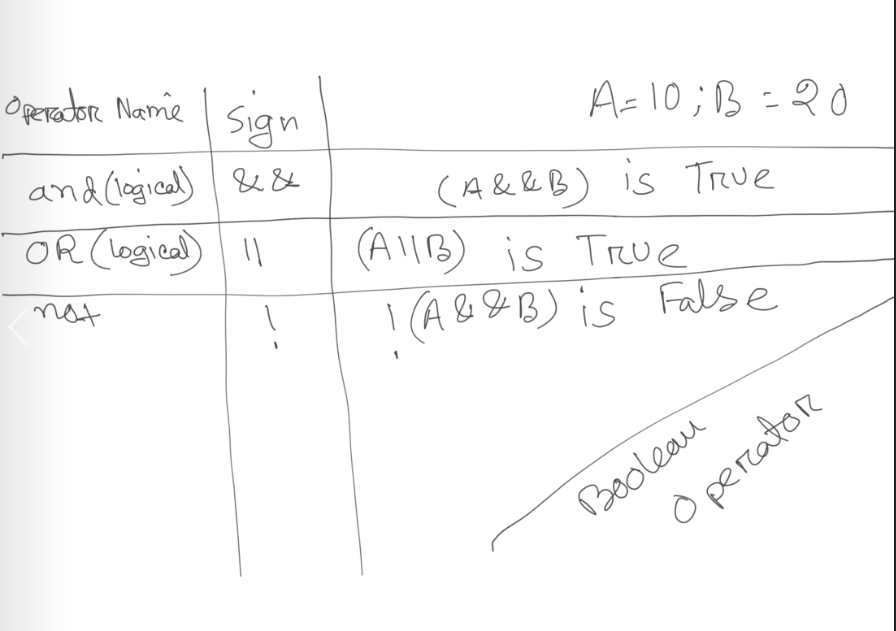 Operator Name Sign A=10; B=20
and (logical) && (A&&B) is True
OR (logical) || (A||B) is True
not ! !(A&&B) is False
Boolean
Operator